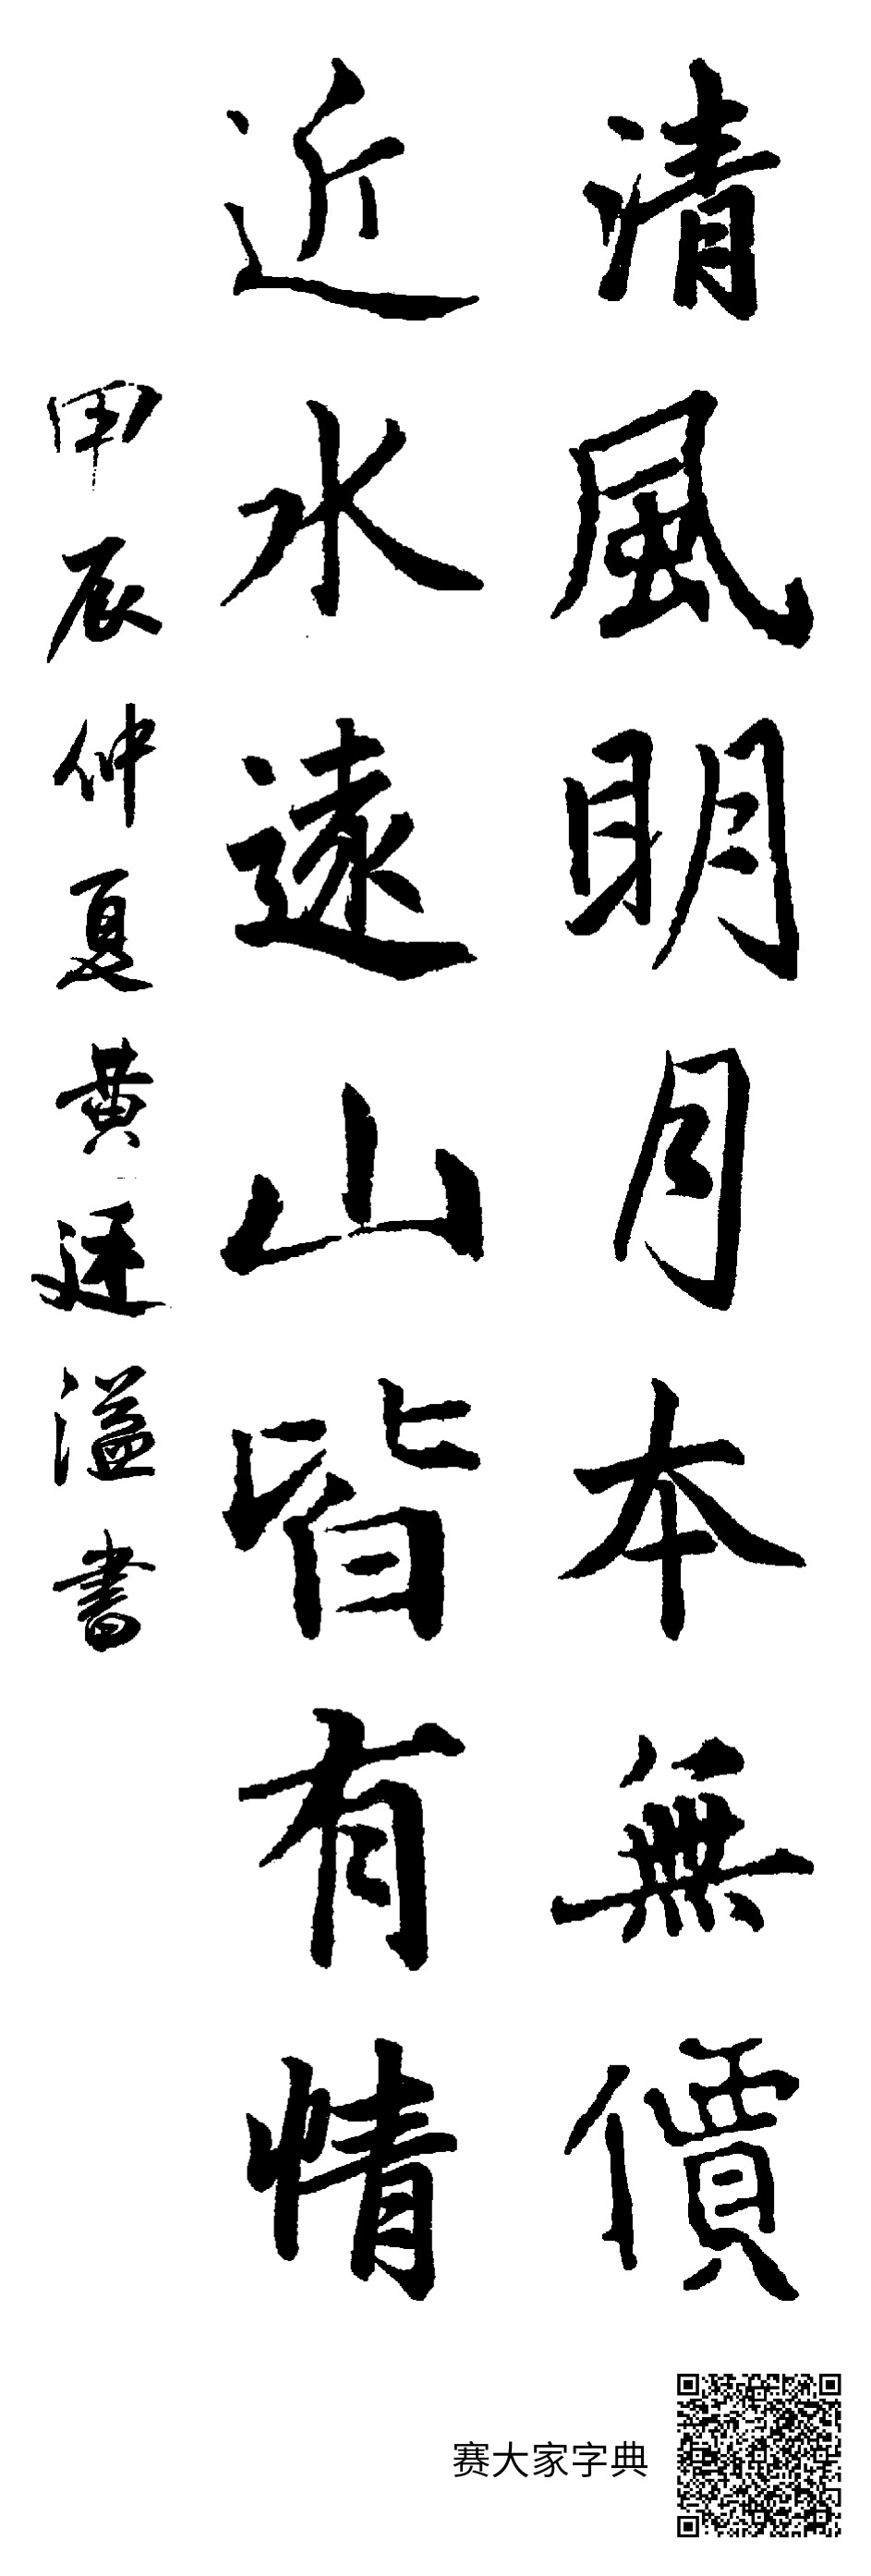 清風明月本無價
近水遠山皆有情
甲辰仲夏黄廷溢書
赛大家字典